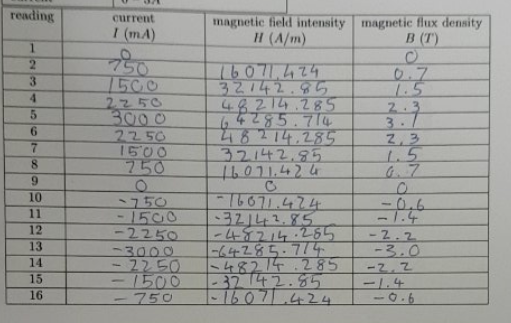 reading current I (mA) magnetic field intensity H (A/m) magnetic flux density B (T)
1 0 0
2 750 16071.424 0.7
3 1500 32142.85 1.5
4 2250 48214.285 2.3
5 3000 64285.714 3.1
6 2250 48214.285 2.3
7 1500 32142.85 1.5
8 750 16071.424 0.7
9 0 0 0
10 -750 -16071.424 -0.6
11 -1500 -32142.85 -1.4
12 -2250 -48214.285 -2.2
13 -3000 -64285.714 -3.0
14 -2250 -48214.285 -2.2
15 -1500 -32142.85 -1.4
16 -750 -16071.424 -0.6